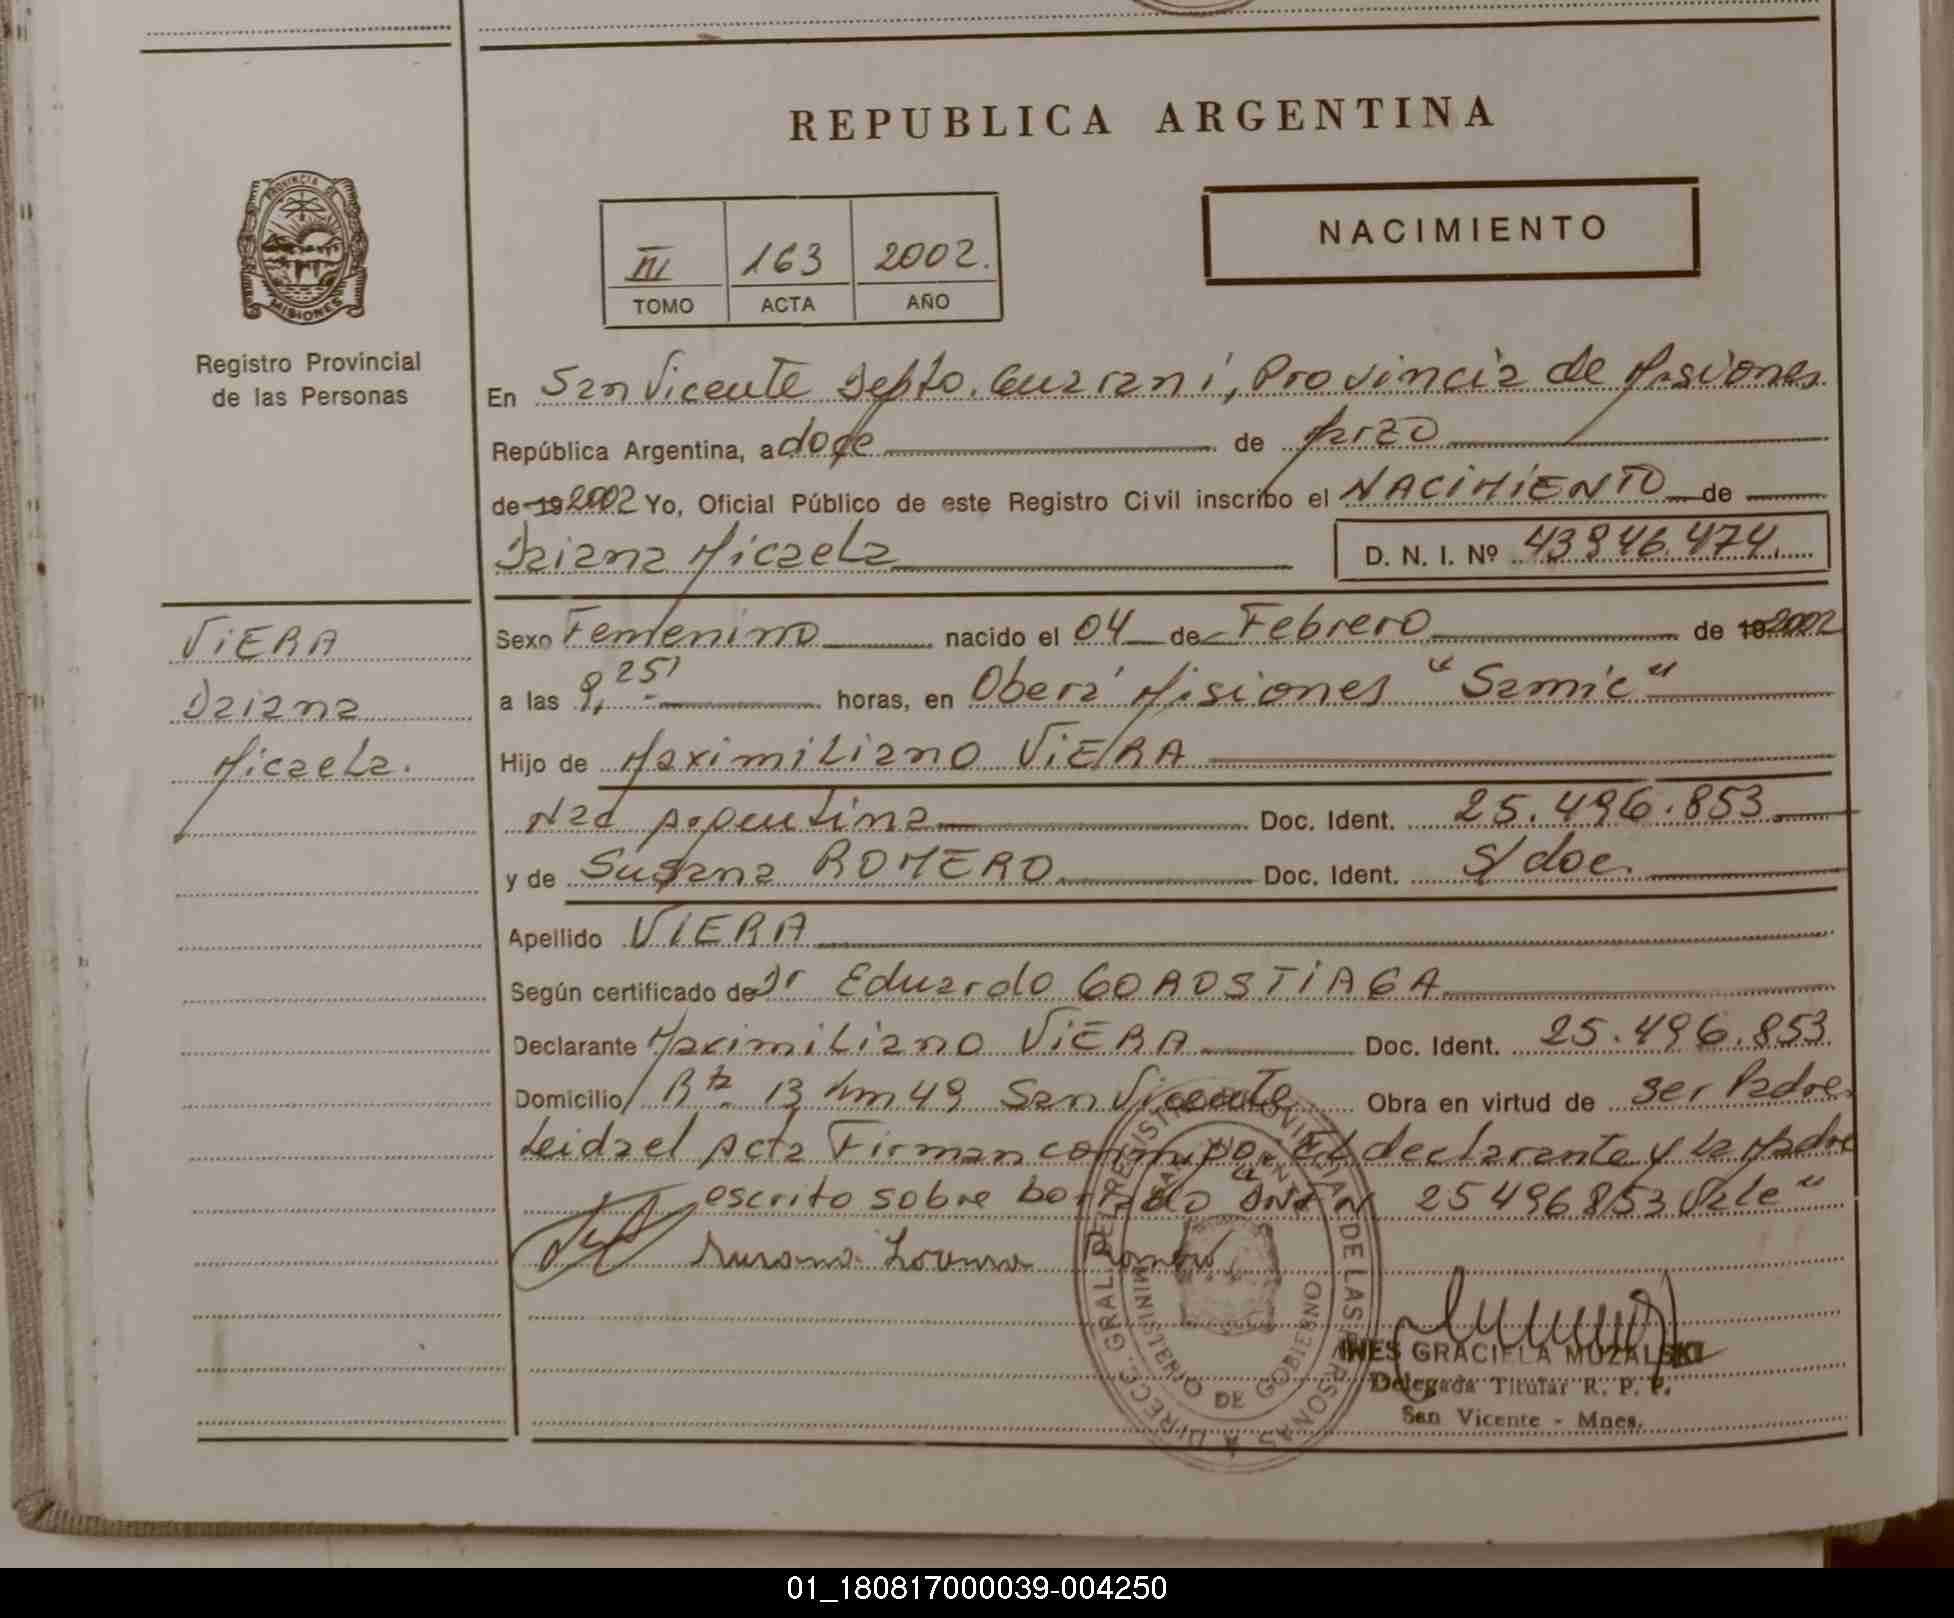 REPUBLICA ARGENTINA
PROVINCIA DE
MISIONES
Registro Provincial
de las Personas
III 163 2002.
TOMO ACTA AÑO
NACIMIENTO
En San Vicente Depto. Guaraní, Provincia de Misiones
República Argentina, a doce de Marzo
de 19 2002 Yo, Oficial Público de este Registro Civil inscribo el NACIMIENTO de
Daiana Micaela D. N. I. Nº 43946.474
VIERA
Daiana
Micaela.
Sexo Femenino nacido el 04 de Febrero de 19 2002
a las 9,25' horas, en Oberá Misiones "Samic"
Hijo de Maximiliano VIERA
Nac Argentina Doc. Ident. 25.496.853
y de Susana ROMERO Doc. Ident. S/doc.
Apellido VIERA
Según certificado de Dr Eduardo GOROSTIAGA
Declarante Maximiliano VIERA Doc. Ident. 25.496.853
Domicilio Rta. 13 km 49 San Vicente Obra en virtud de ser Padre
Leida el Acta Firman conmigo El declarante y la Madre
escrito sobre borrado DNI N 25496853 Vale"
Susana Lorena Romero
DIRECC. GRAL DEL REGISTRO PROVINCIAL DE LAS PERSONAS
MINISTERIO DE GOBIERNO
SAN VICENTE
INES GRACIELA MUZALSKI
Delegada Titular R. P. P.
San Vicente - Mnes.
01_180817000039-004250